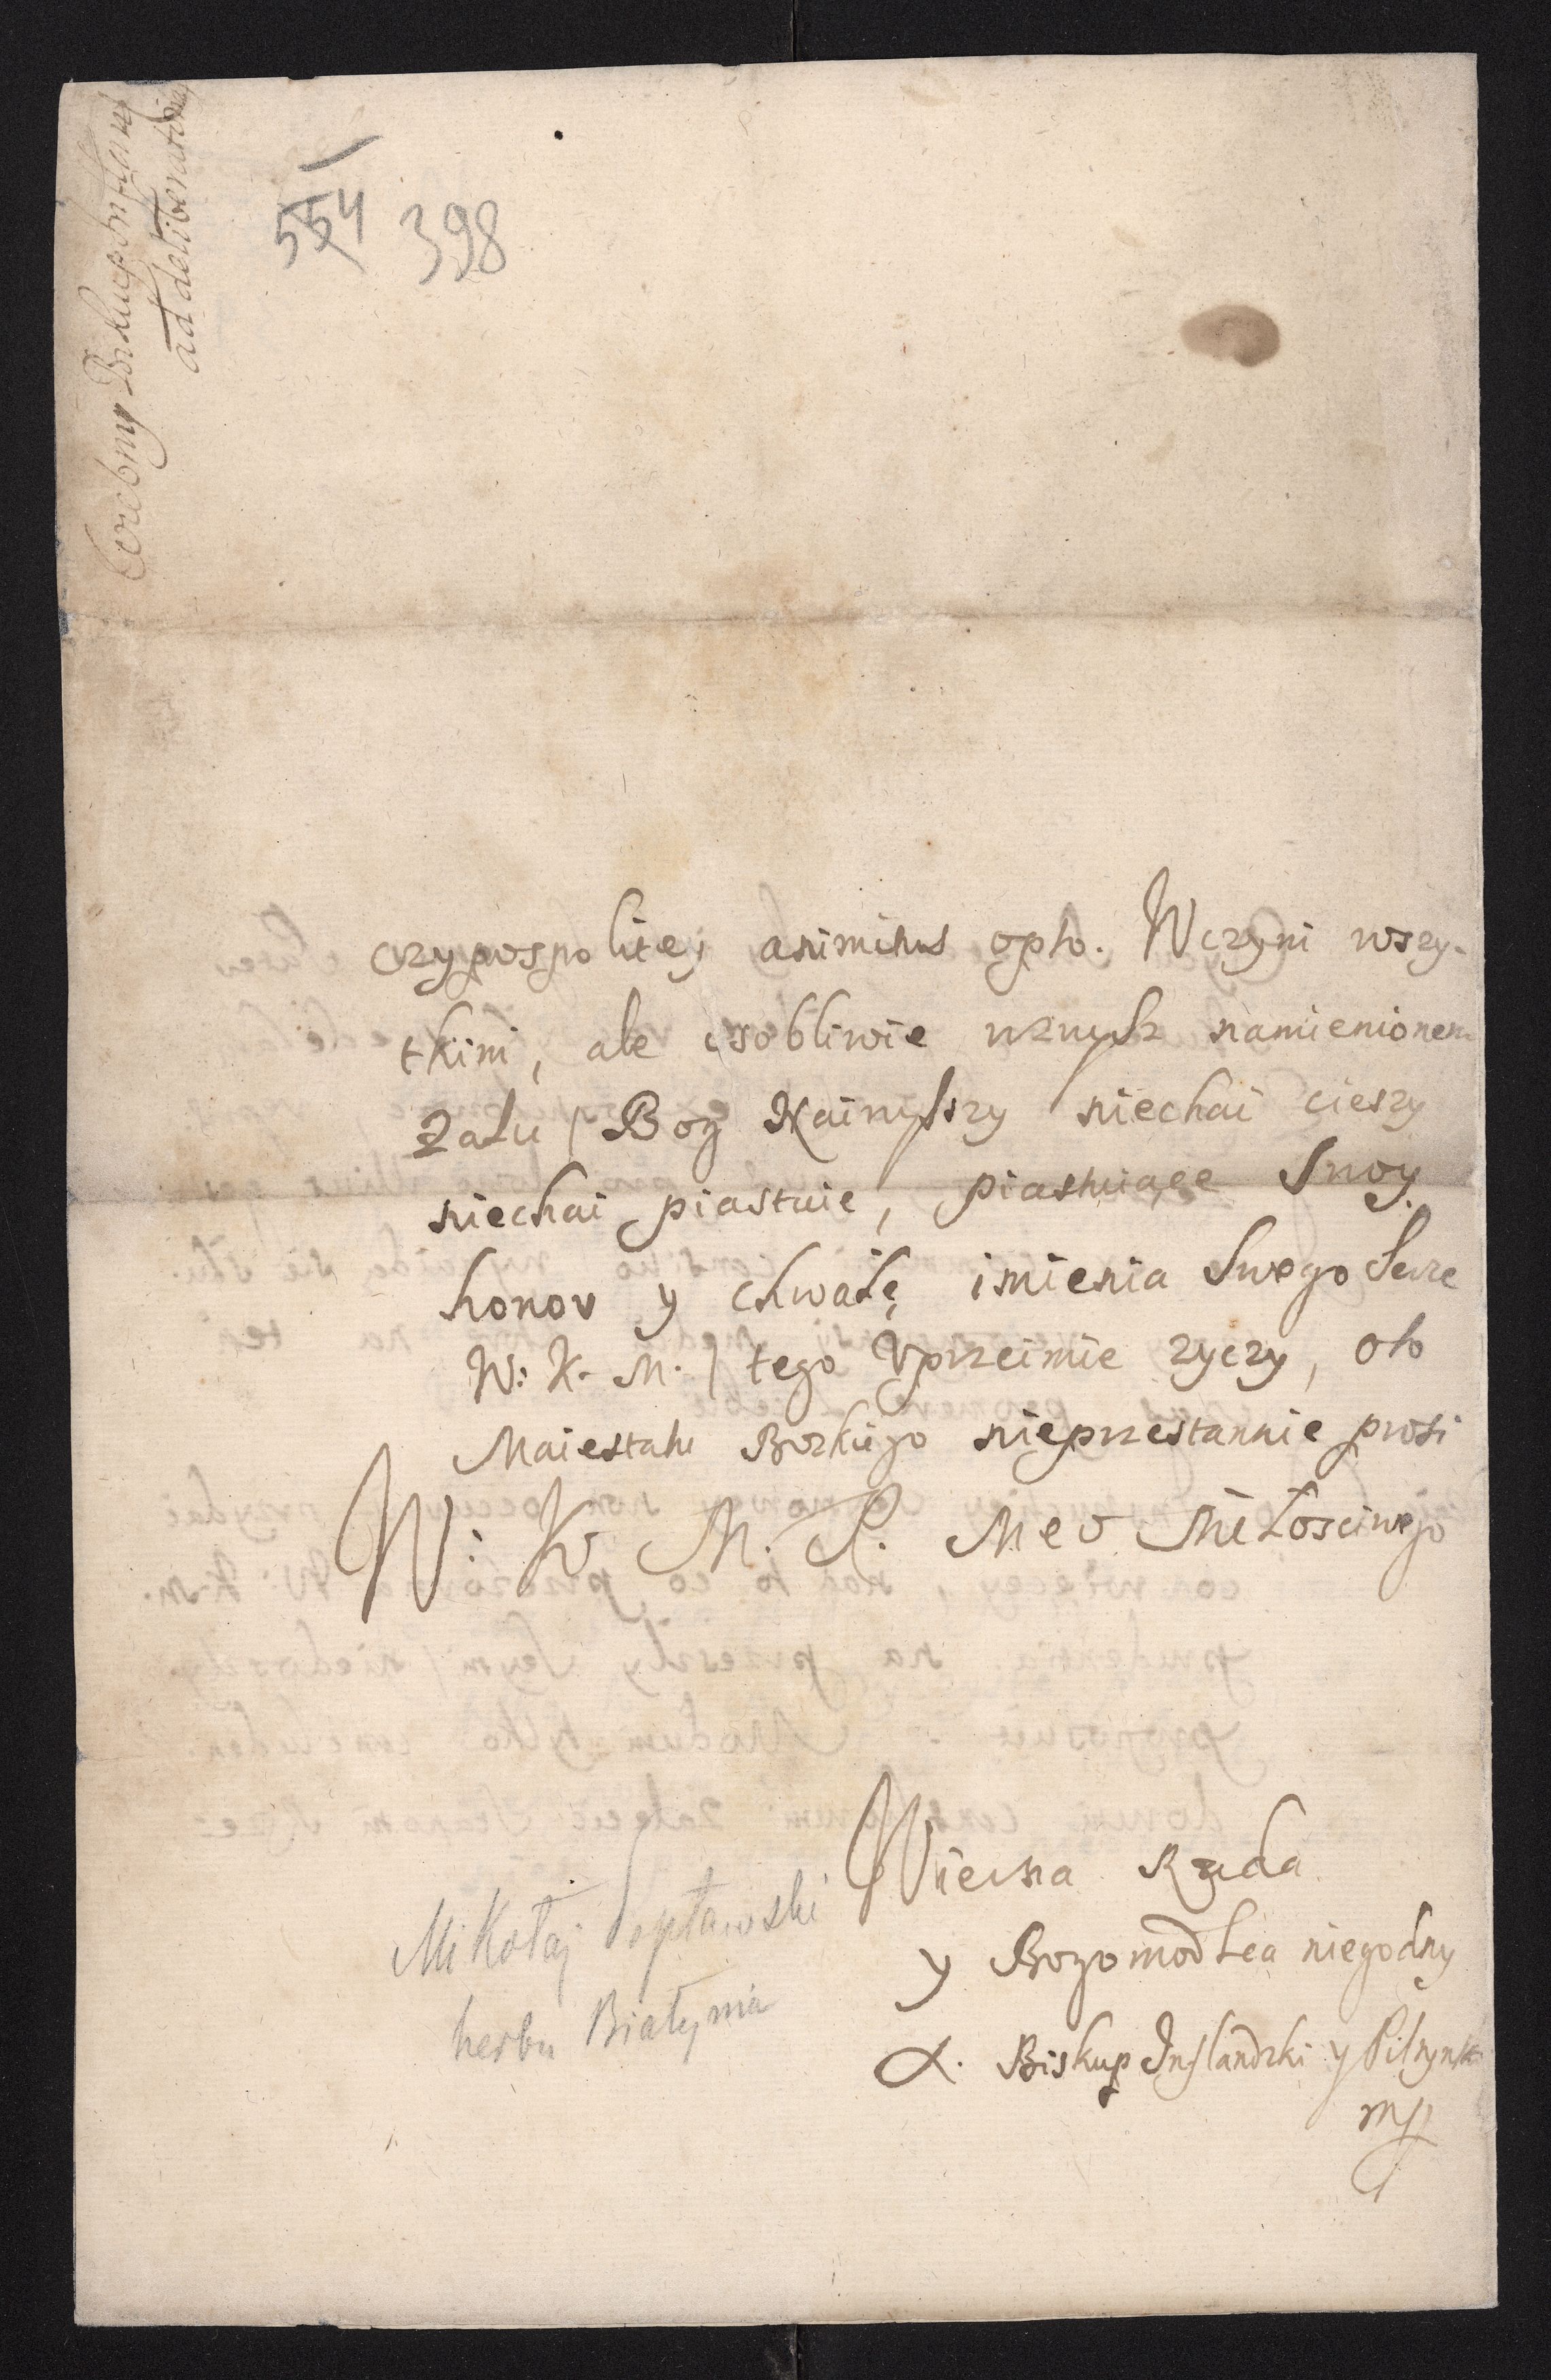 554 398
ad deliberatoria
czypospolitej animitus opto. W czym wszy-
tkim, ale osobliwie wzwysz namienionem
Zalu / Bog Nainysszy niechai cieszy
niechai piastuie, piastuiące Swoy
honor y chwałę imienia Swego Serce
W: K. M. / tego Vprzeimie zyczy, oto
Maiestatu Bozkiego nieprzestannie prosi
W: K M. P. Meo Miłosciwego
Wierna Rada
y Bogomodlca niegodny
X. Biskup Inflandzki y Pilzynski
mp
Mikołaj Popławski
herbu Białynia